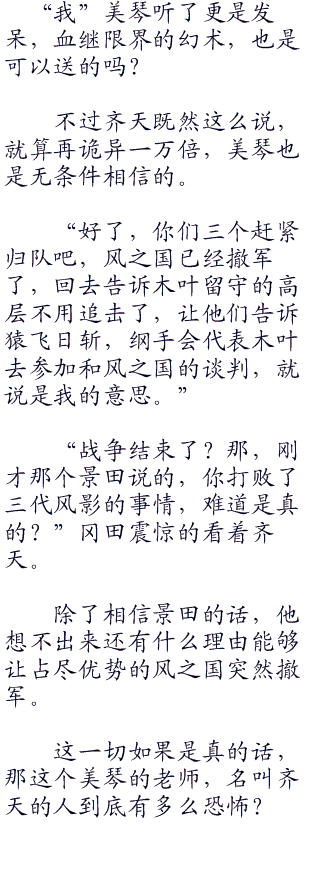 “我”美琴听了更是发
呆，血继限界的幻术，也是
可以送的吗？
不过齐天既然这么说，
就算再诡异一万倍，美琴也
是无条件相信的。
“好了，你们三个赶紧
归队吧，风之国已经撤军
了，回去告诉木叶留守的高
层不用追击了，让他们告诉
猿飞日斩，纲手会代表木叶
去参加和风之国的谈判，就
说是我的意思。”
“战争结束了？那，刚
才那个景田说的，你打败了
三代风影的事情，难道是真
的？”冈田震惊的看着齐
天。
除了相信景田的话，他
想不出来还有什么理由能够
让占尽优势的风之国突然撤
军。
这一切如果是真的话，
那这个美琴的老师，名叫齐
天的人到底有多么恐怖？